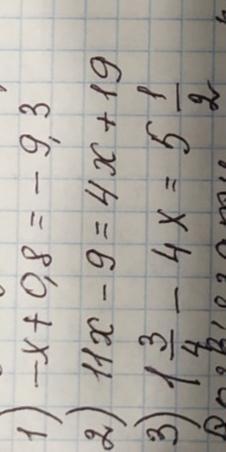 1) -x + 0,8 = -9,3
2) 11x - 9 = 4x + 19
3) 1 3/4 - 4x = 5 1/2